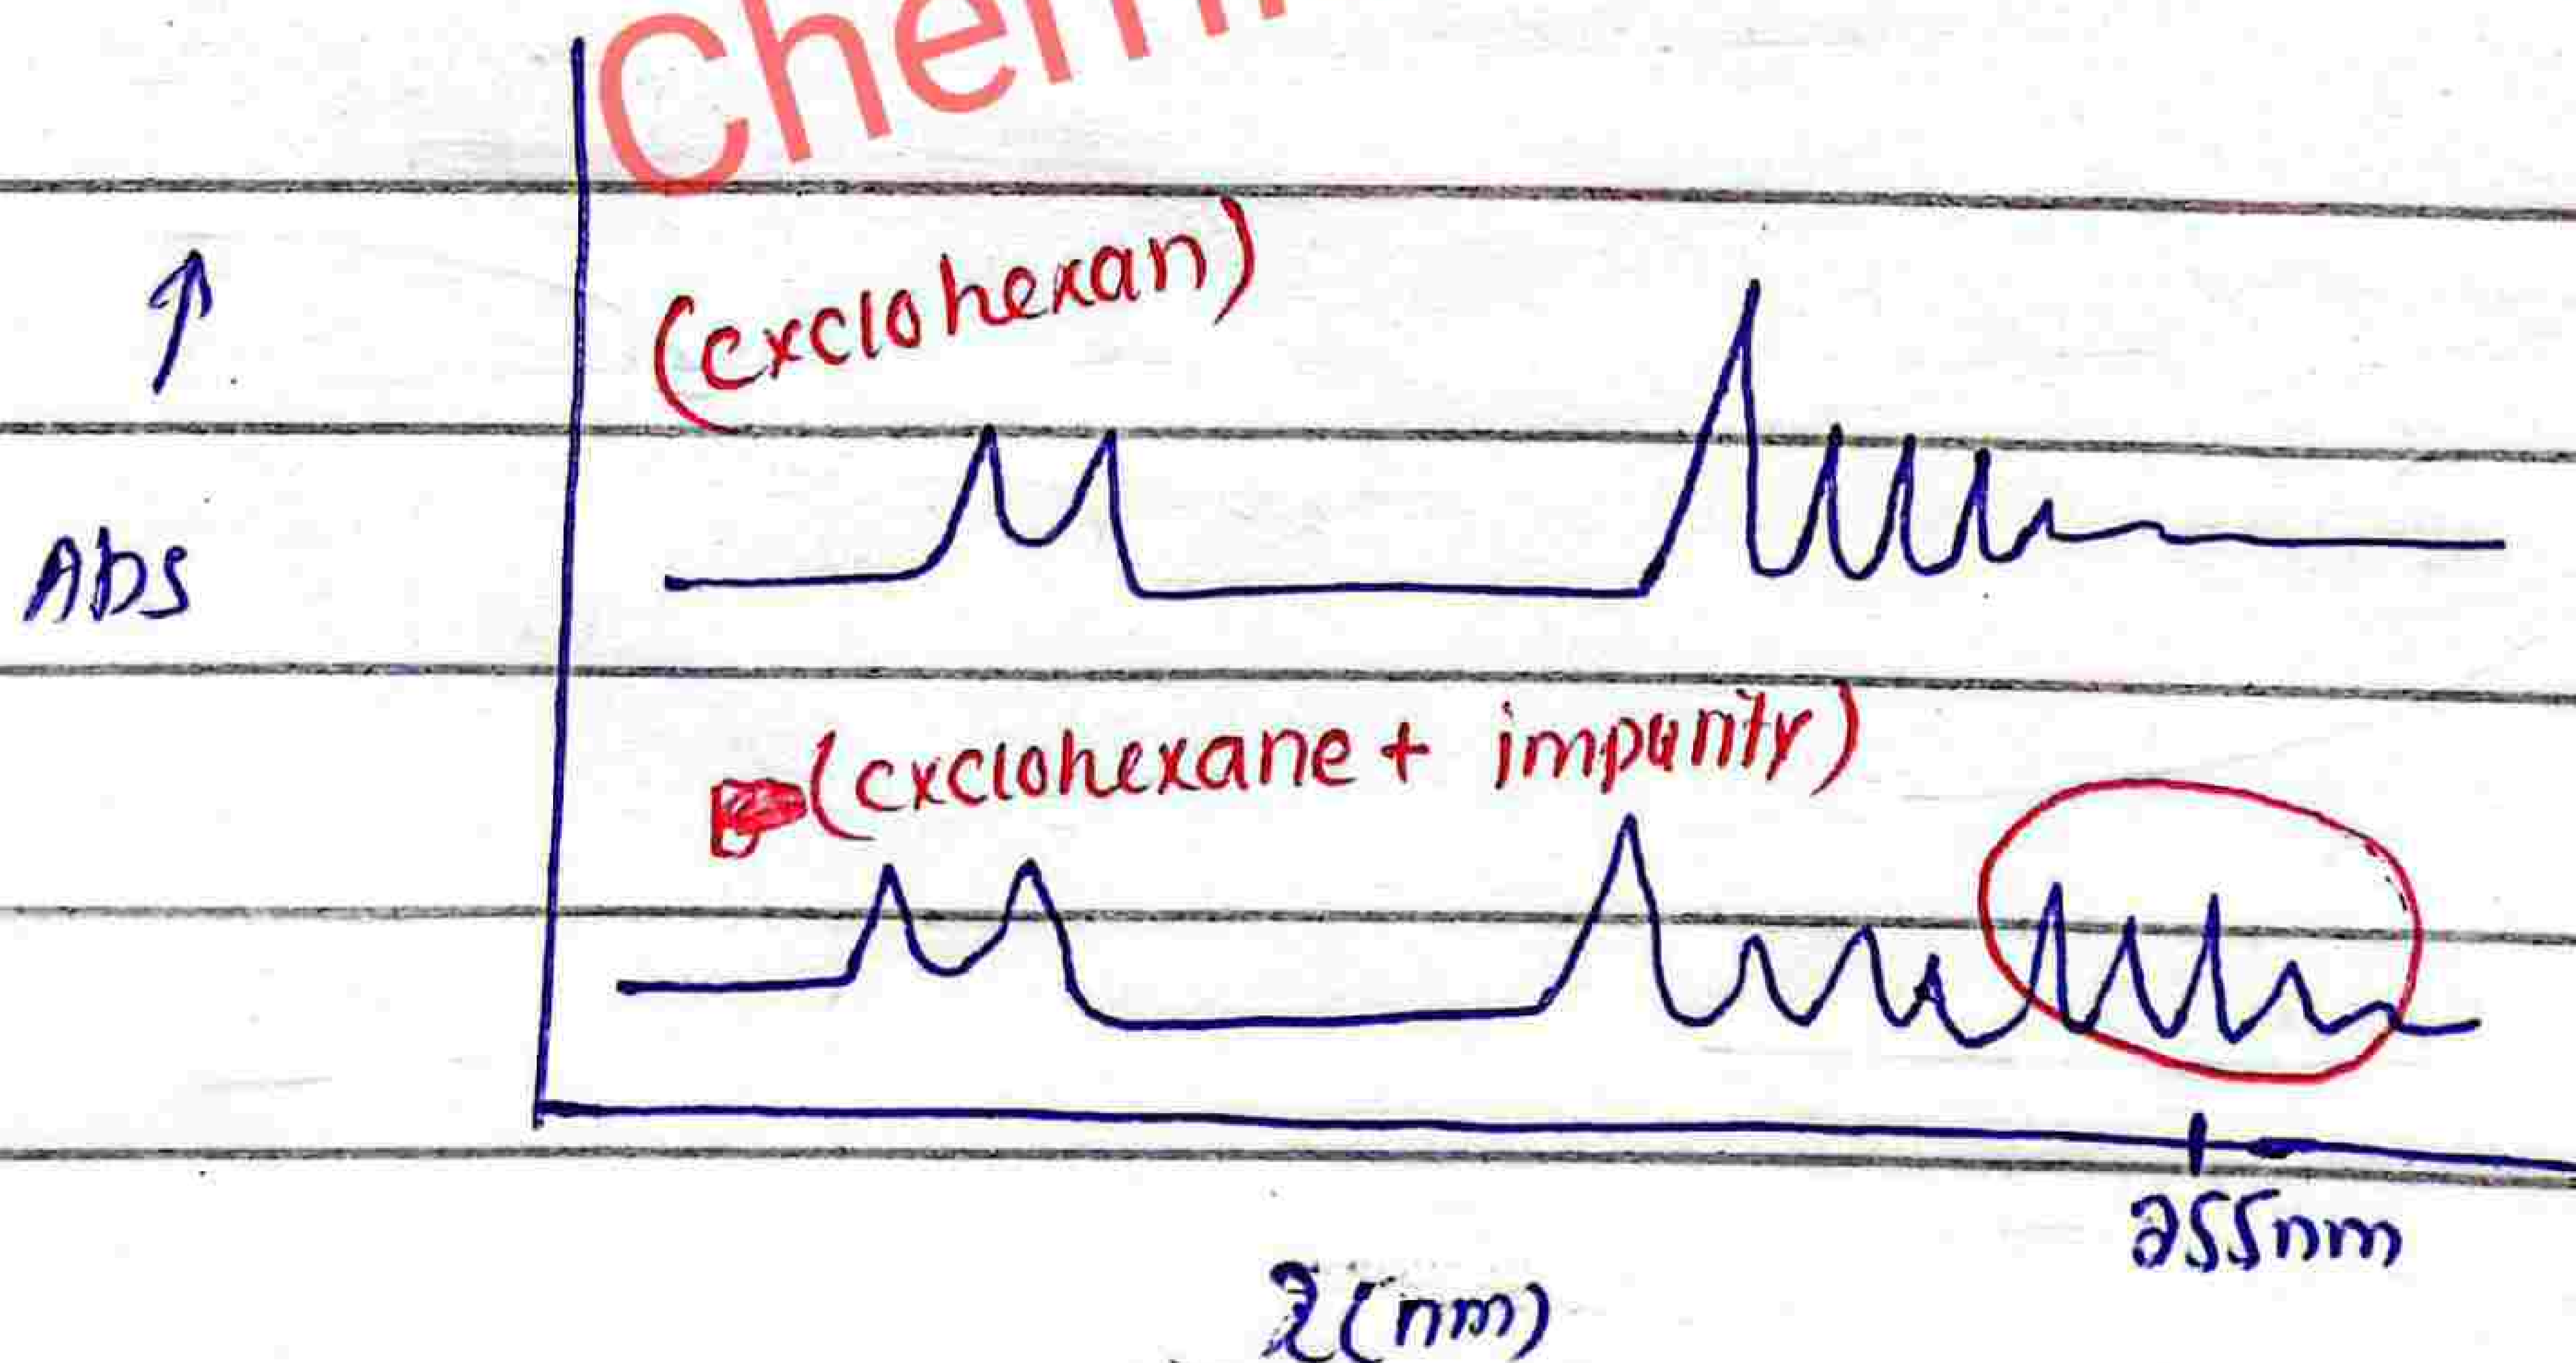 Chem
(cxclohexan)
↑
Abs
(cxclohexane + impurity)
255nm
λ(nm)